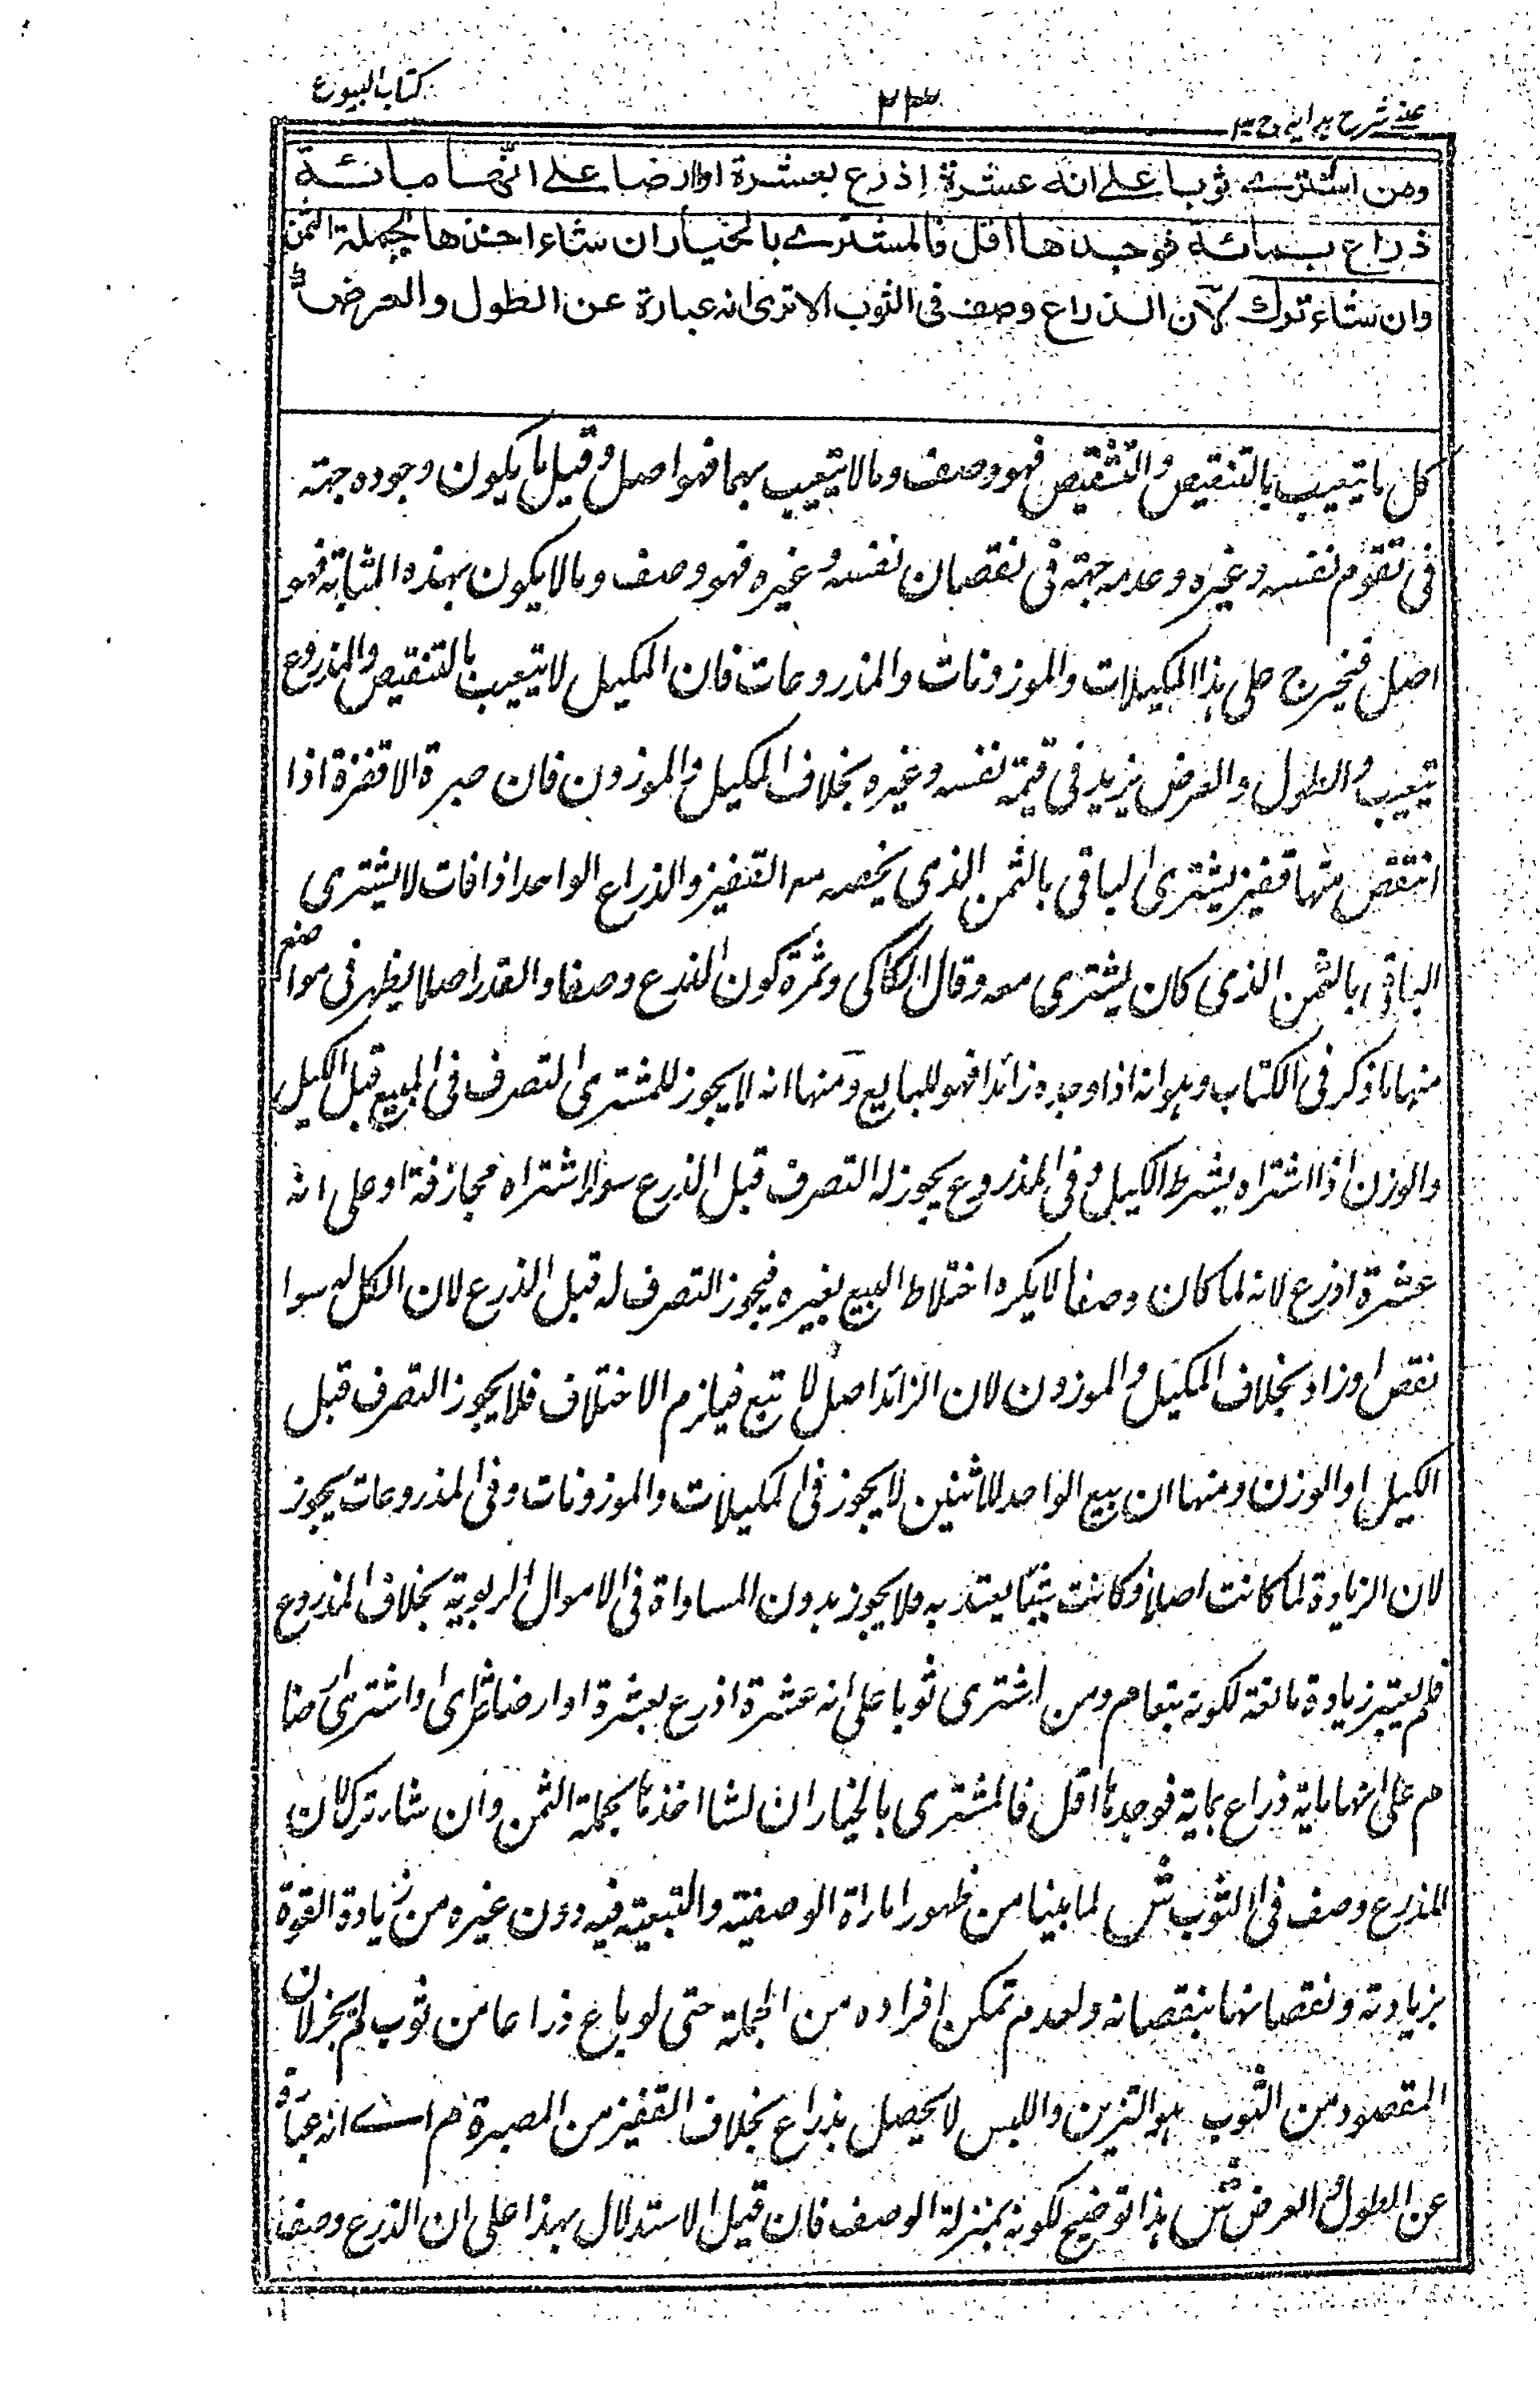 عينى شرح هدايه ج ٣
٢٣
كتاب البيوع
ومن اشترے ثوبا علے انه عشرة اذرع بعشرة او ارضا علے انها مائة
ذراع بمائة فوجدها اقل فالمشترے بالخيار ان شاء اخذها بجملة الثمن
وان شاء ترك لان الذراع وصف فى الثوب الا ترى انه عبارة عن الطول والعرض
كل ما يتعيب بالتنقيص والتشقيص فهو وصف وما لا يتعيب بهما فهو اصل وقيل ما يكون وجوده جهته
فى تقوم نفسه وغيره وعدمه جهته فى نقصان نفسه وغيره فهو وصف وما لا يكون بهذه المثابة فهو
اصل فيخرج على هذا المكيلات والموزونات والمذروعات فان المكيل لا يتعيب بالتنقيص والمذروع
يتعيب والطول والعرض يزيد فى قيمة نفسه وغيره بخلاف المكيل والموزون فان صبرة الاقفزة اذا
انتقص منها قفيز يشترى الباقى بالثمن الذى يخصه مع القفيز والذراع الواحد اذا فات لا يشترى
الباقى بالثمن الذى كان يشترى معه وقال الكاكى وثمرة كون الذرع وصفا والقدر اصلا يظهر فى مواضع
منها ما ذكر فى الكتاب وهو انه اذا وجده زائدا فهو للبايع ومنها انه لا يجوز للمشترى التصرف فى المبيع قبل الكيل
والوزن اذا اشتراه بشرط الكيل وفى المذروع يجوز له التصرف قبل الذرع سواء اشتراه مجازفة او على انه
عشرة اذرع لانه لما كان وصفا لا يكره اختلاط البيع بغيره فيجوز التصرف له قبل الذرع لان الكل له سوا
نقص او زاد بخلاف المكيل والموزون لان الزائد اصل لا تبع فيلزم الاختلاف فلا يجوز التصرف قبل
الكيل او الوزن ومنها ان بيع الواحد للاثنين لا يجوز فى المكيلات والموزونات وفى المذروعات يجوز
لان الزيادة لما كانت اصلا وكانت يعتد به فلا يجوز بدون المساواة فى الاموال الربوية بخلاف المذروع
فلم يعتبر زيادة مانعة لكونه تبعا م ومن اشترى ثوبا على انه عشرة اذرع بعشرة او ارضا ش اى او اشترى ارضا
م على انها ماية ذراع بماية فوجدها اقل فالمشترى بالخيار ان شا اخذها بجملة الثمن وان شاء ترك لان
الذرع وصف فى الثوب ش لما بينا من ظهور امارة الوصفية والتبعية فيه دون غيره من زيادة القوة
بزيادته ونقصانها بنقصانه ولعدم تمكن افراده من الجملة حتى لو باع ذراعا من ثوب لم يجز لان
المقصود من الثوب هو التزين واللبس لا يحصل بذراع بخلاف القفيز من الصبرة م اے انه عبارة
عن الطول والعرض ش هذا توضيح لكونه بمنزلة الوصف فان قيل الاستدلال بهذا على ان الذرع وصف